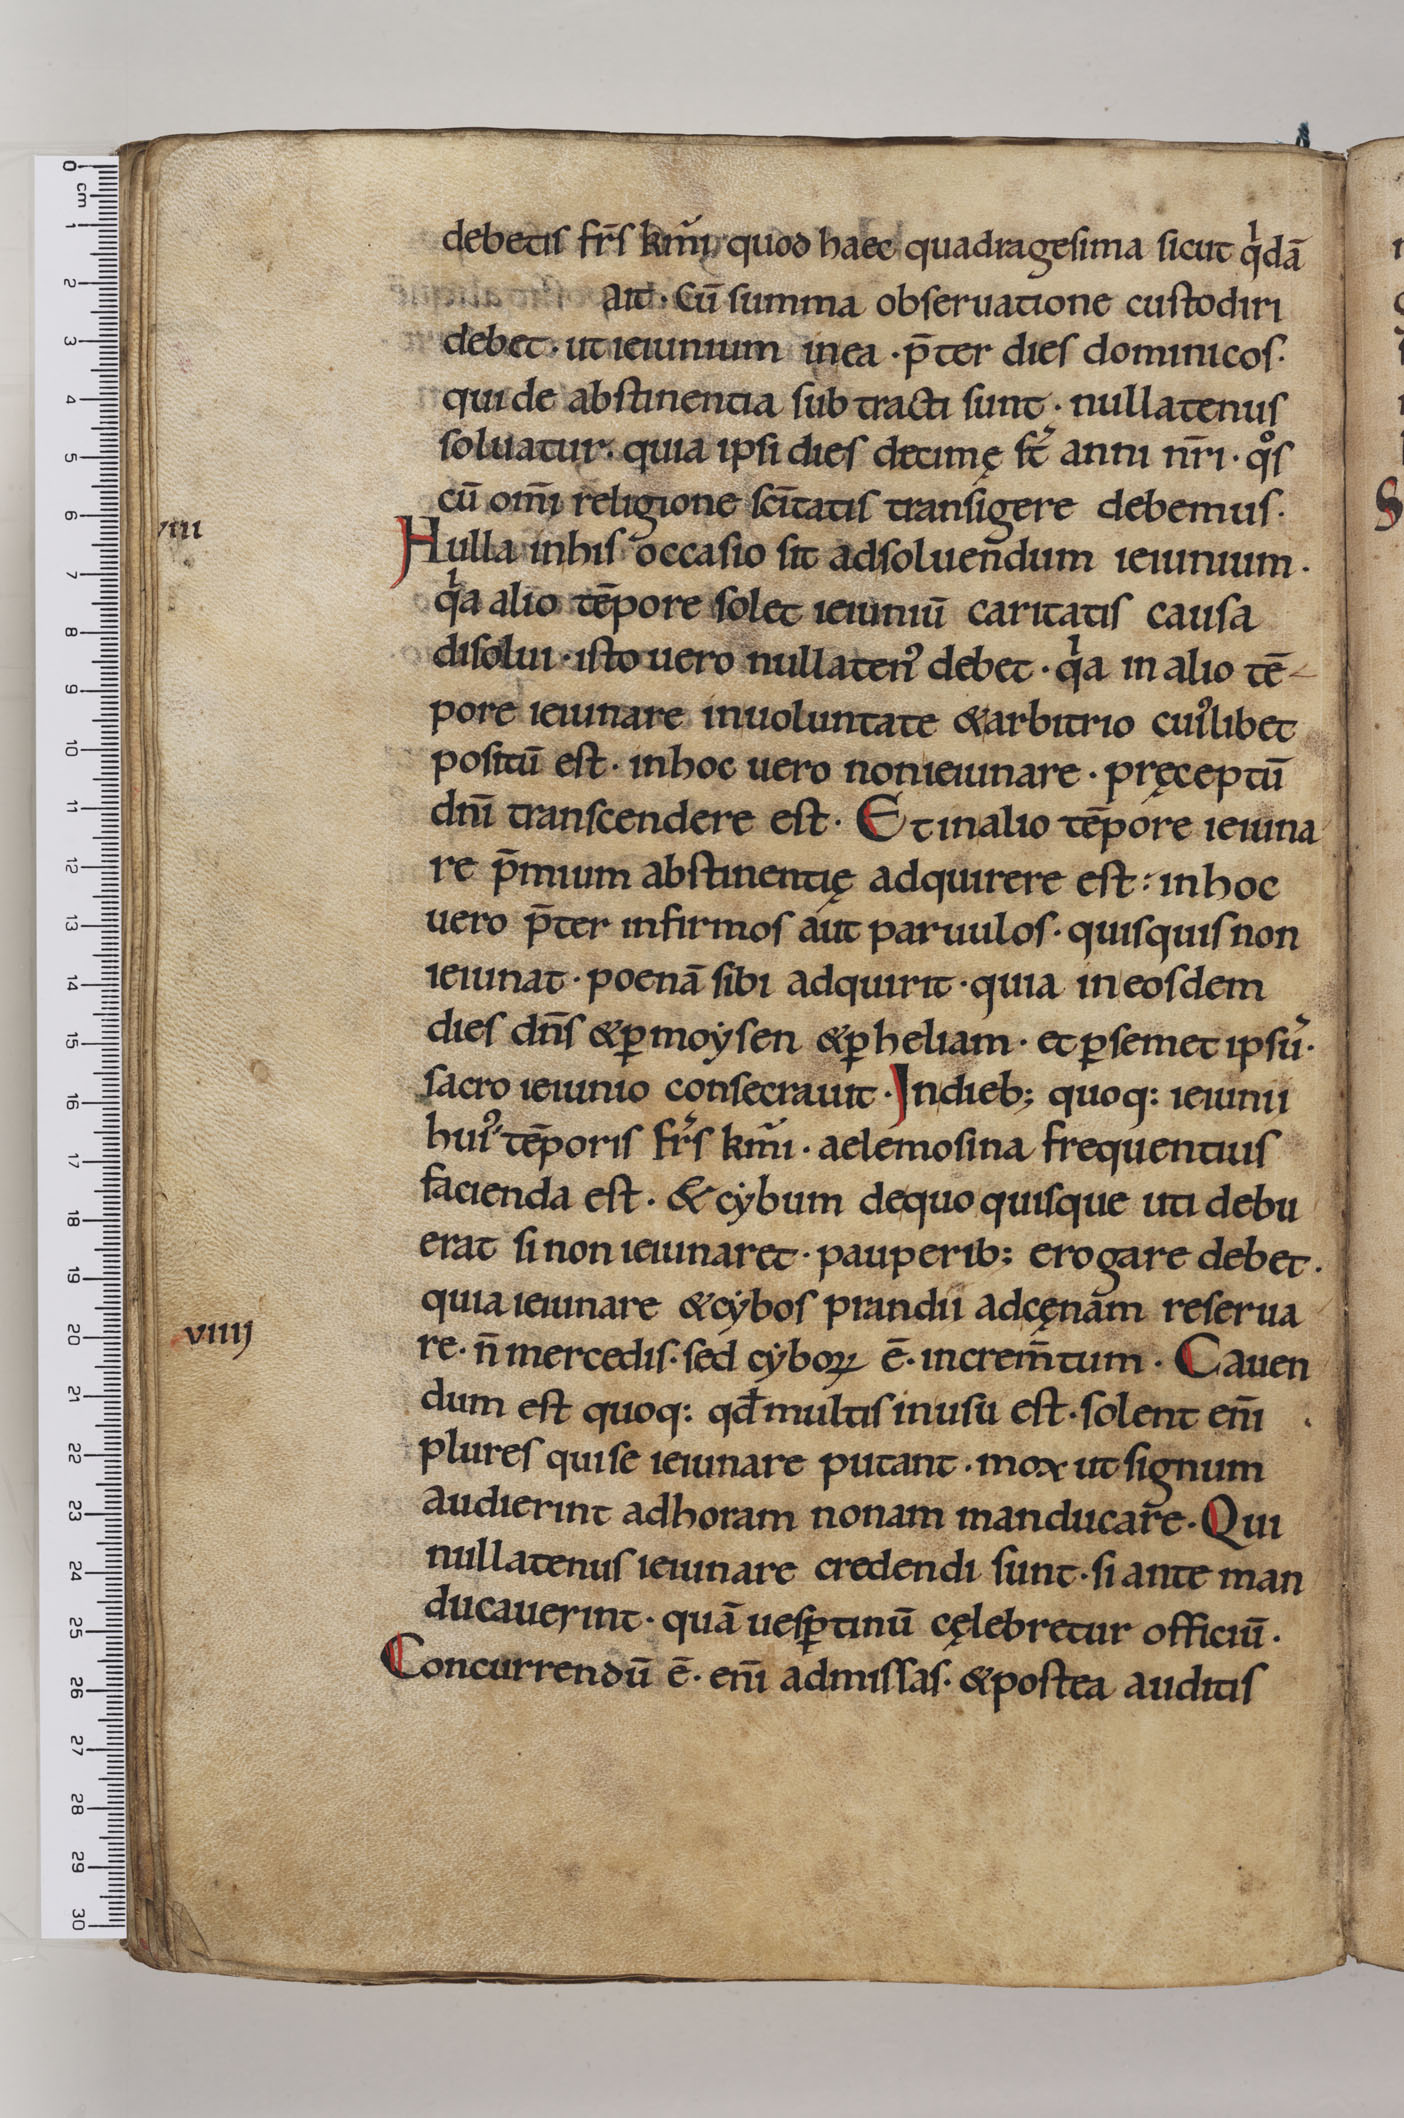 debetis fr̄s km̄i, quod haec quadragesima sicut qͥdā
ait · Cū summa obseruatione custodiri
debet · ut ieiunium inea · p̄ter dies dominicos ·
qui de abstinentia subtracti sunt · nullatenus
soluatur · quia ipsi dies decimę st̄ anni nr̄i · qͦs
cū om̄i religione scītatis transigere debemus ·
viii
Nulla inhis occasio sit adsoluendum ieiunium ·
qͥa alio tēpore solet ieiuniū caritatis causa
disolui · isto uero nullaten᾽ debet · qͥa in alio tē
pore ieiunare inuoluntate & arbitrio cui᾽libet
positū est · inhoc uero nonieiunare · pręceptū
dn̄i transcendere est · Et inalio tēpore ieiuna
re p̄mium abstinentię adquirere est : inhoc
uero p̄ter infirmos aut paruulos · quisquis non
ieiunat · poenā sibi adquirit · quia in eosdem
dies dn̄s & ꝑ moẏsen & ꝑ heliam · et ꝑ semet ipsū ·
sacro ieiunio consecrauit · Indieb; quoq: ieiunii
hui᾽ tēporis fr̄s km̄i · aelemosina frequentius
facienda est · & cẏbum dequo quisque uti debu
erat si non ieiunaret · pauperib; erogare debet ·
quia ieiunare & cẏbos prandii adcęnam reserua
viiij
re · n̄ mercedis · sed cẏboꝝ ē · increm̄tum · Cauen
dum est quoq: qđ multis inusu est · solent em̄
plures qui se ieiunare putant · mox ut signum
audierint adhoram nonam manducare · Qui
nullatenus ieiunare credendi sunt · si ante man
ducauerint · quā uesꝑtinū cęlebretur officiū ·
Concurrendū ē · em̄ admissas · & postea auditis
0 cm 1 2 3 4 5 6 7 8 9 10 11 12 13 14 15 16 17 18 19 20 21 22 23 24 25 26 27 28 29 30